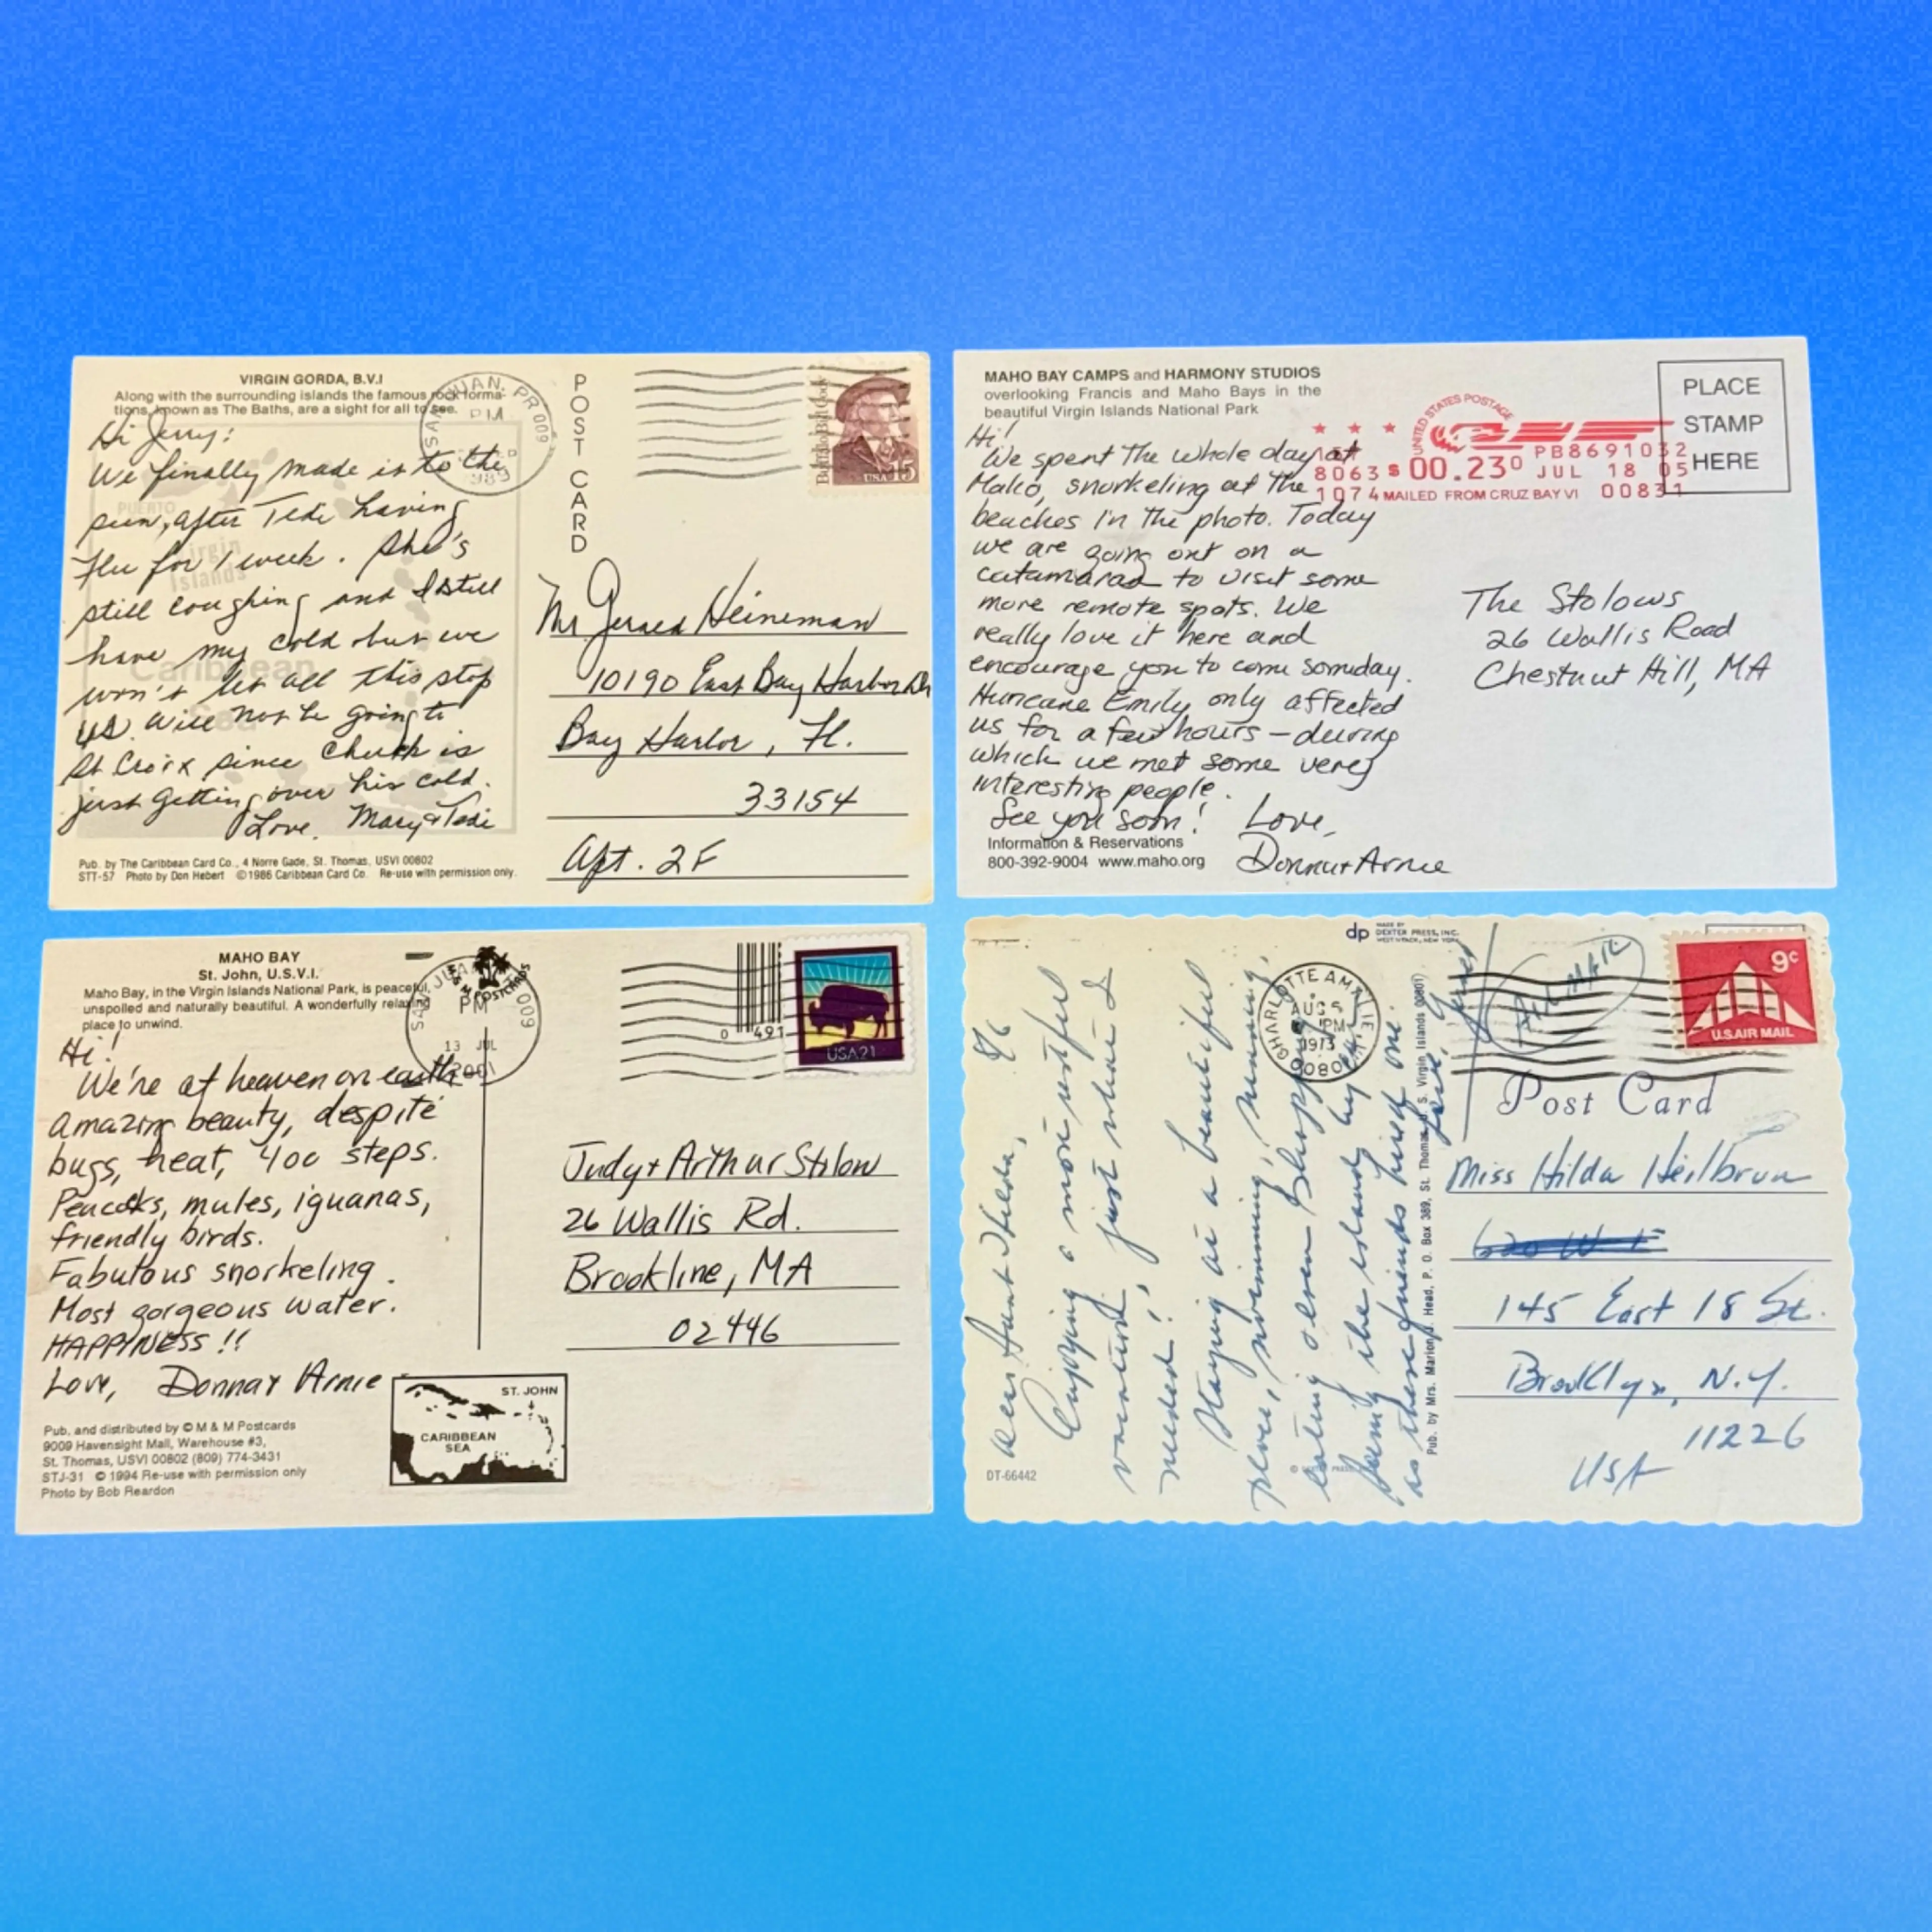 VIRGIN GORDA, B.V.I
Along with the surrounding islands the famous rock forma-
tions, known as The Baths, are a sight for all to see.
Hi Jerry:
We finally made it to the
sun, after Tedi having
flu for 1 week. She's
still coughing and I still
have my cold but we
won't let all this stop
us. Will not be going to
St Croix since Chuck is
just getting over his cold.
Love, Mary & Tedi
PUERTO
Virgin
Islands
Caribbean
Sea
Pub. by The Caribbean Card Co., 4 Norre Gade, St. Thomas, USVI 00802
STT-57 Photo by Don Hebert ©1986 Caribbean Card Co. Re-use with permission only.
SAN JUAN, PR 009
1989
POST CARD
Buffalo Bill Cody
USA 15
Mr Gerald Heineman
10190 East Bay Harbor Dr
Bay Harbor, Fl.
33154
Apt. 2F
MAHO BAY CAMPS and HARMONY STUDIOS
overlooking Francis and Maho Bays in the
beautiful Virgin Islands National Park
Hi!
We spent the whole day at
Maho, snorkeling at the
beaches in the photo. Today
we are going out on a
catamaran to visit some
more remote spots. We
really love it here and
encourage you to come someday.
Hurricane Emily only affected
us for a few hours – during
which we met some very
interesting people.
See you soon! Love,
Donna + Arnie
Information & Reservations
800-392-9004 www.maho.org
UNITED STATES POSTAGE
PB8691032
8063 $ 00.23⁰ JUL 18 05
1074 MAILED FROM CRUZ BAY VI 00831
PLACE
STAMP
HERE
The Stolows
26 Wallis Road
Chestnut Hill, MA
MAHO BAY
St. John, U.S.V.I.
Maho Bay, in the Virgin Islands National Park, is peaceful,
unspoiled and naturally beautiful. A wonderfully relaxing
place to unwind.
Hi!
We're at heaven on earth –
amazing beauty, despite
bugs, heat, 400 steps.
Peacocks, mules, iguanas,
friendly birds.
Fabulous snorkeling.
Most gorgeous water.
HAPPINESS!!
Love, Donna + Arnie
Pub. and distributed by © M & M Postcards
9009 Havensight Mall, Warehouse #3,
St. Thomas, USVI 00802 (809) 774-3431
STJ-31 © 1994 Re-use with permission only
Photo by Bob Reardon
M & M POSTCARDS
SAN JUAN 009
PM
13 JUL
2001
ST. JOHN
CARIBBEAN
SEA
0 491
USA21
Judy + Arthur Stolow
26 Wallis Rd.
Brookline, MA
02446
dp MADE BY
DEXTER PRESS, INC.
WEST NYACK, NEW YORK
8/6
Dear Aunt Hilda,
Enjoying a most restful
vacation, just what I
needed!
Staying at a beautiful
place, swimming, sunning,
eating & even shopping
being the islands
as these friends lived on one.
Love, Janet
DT-66442
Pub. by Mrs. Marion J. Head, P. O. Box 389, St. Thomas, U. S. Virgin Islands 00801
CHARLOTTE AMALIE
AUG 5
PM
1973
00801
AIR MAIL
9c
U.S. AIR MAIL
Post Card
Miss Hilda Heilbrun
145 East 18 St.
Brooklyn, N.Y.
11226
USA